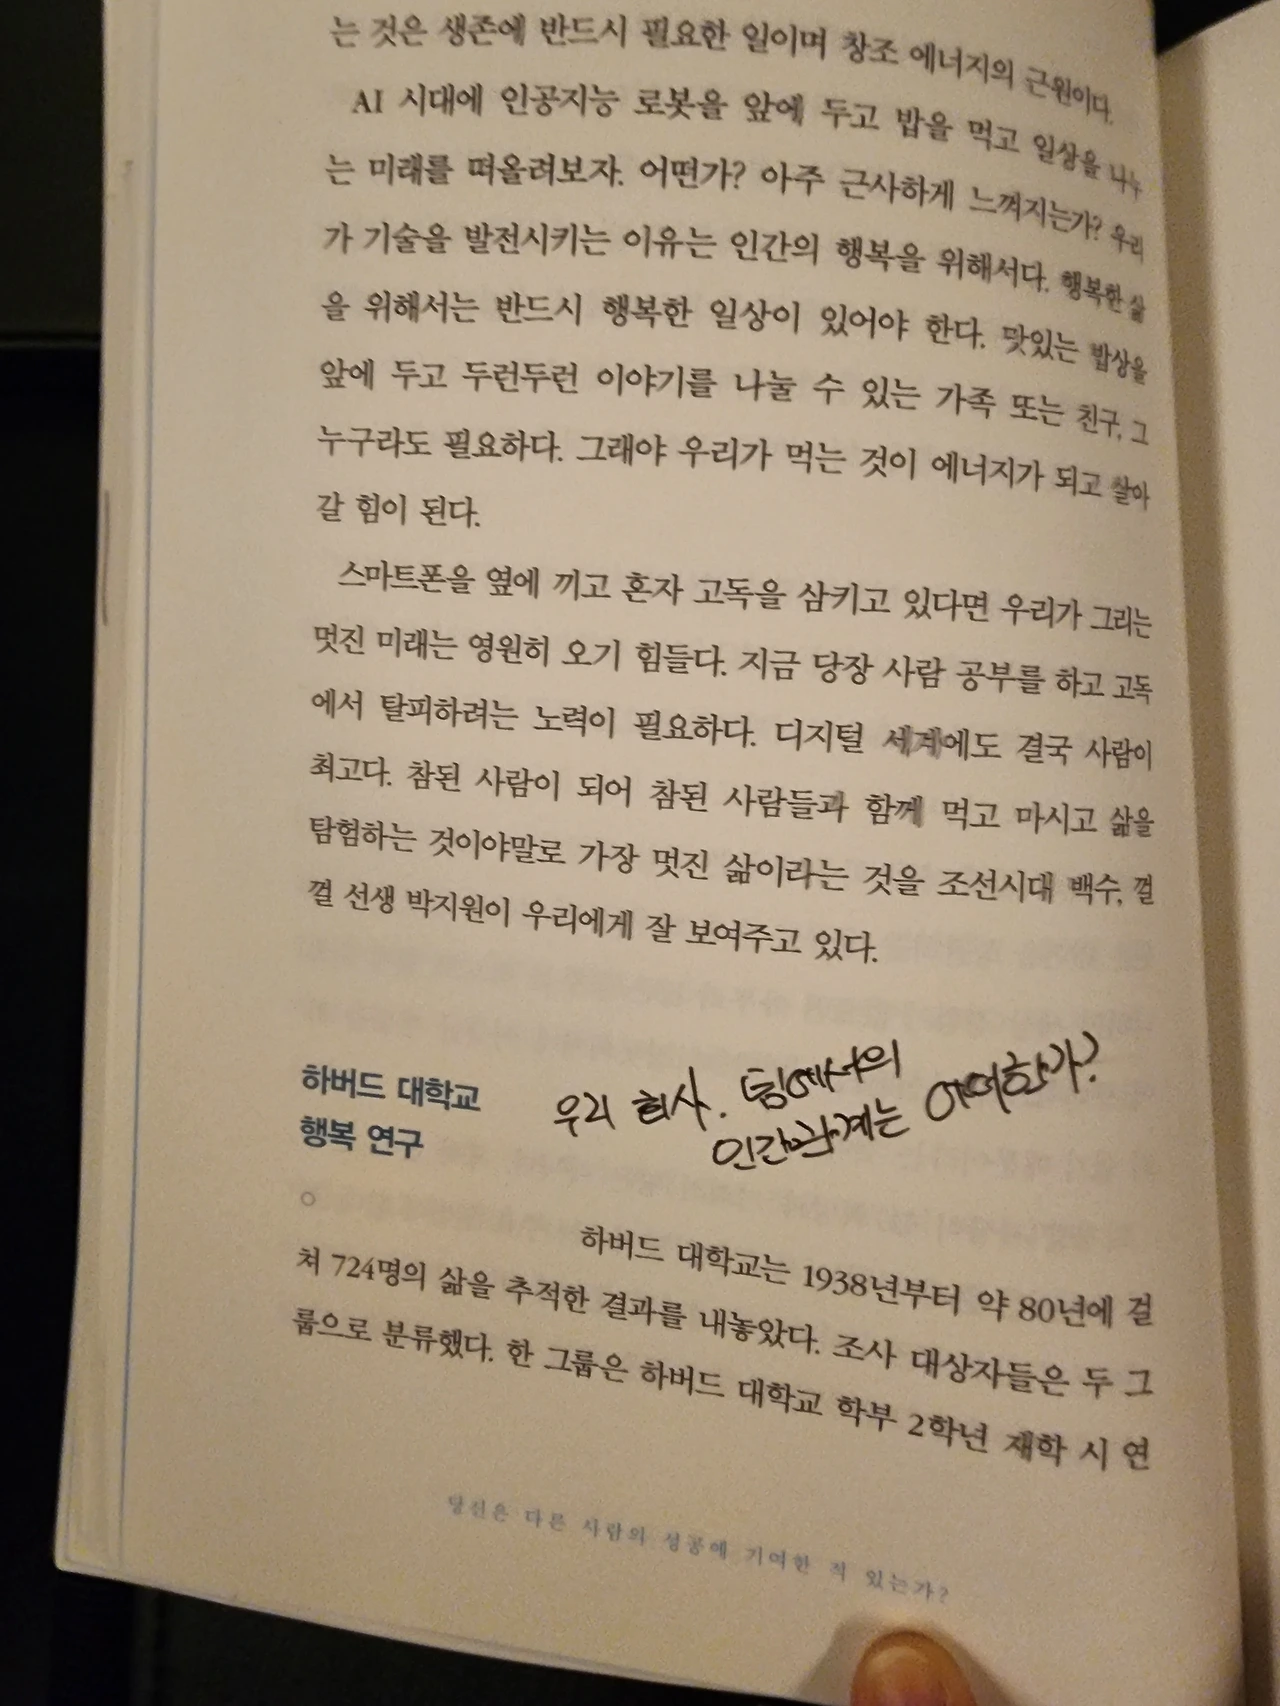 는 것은 생존에 반드시 필요한 일이며 창조 에너지의 근원이다.
AI 시대에 인공지능 로봇을 앞에 두고 밥을 먹고 일상을 나누
는 미래를 떠올려보자. 어떤가? 아주 근사하게 느껴지는가? 우리
가 기술을 발전시키는 이유는 인간의 행복을 위해서다. 행복한 삶
을 위해서는 반드시 행복한 일상이 있어야 한다. 맛있는 밥상을
앞에 두고 두런두런 이야기를 나눌 수 있는 가족 또는 친구, 그
누구라도 필요하다. 그래야 우리가 먹는 것이 에너지가 되고 살아
갈 힘이 된다.
스마트폰을 옆에 끼고 혼자 고독을 삼키고 있다면 우리가 그리는
멋진 미래는 영원히 오기 힘들다. 지금 당장 사람 공부를 하고 고독
에서 탈피하려는 노력이 필요하다. 디지털 세계에도 결국 사람이
최고다. 참된 사람이 되어 참된 사람들과 함께 먹고 마시고 삶을
탐험하는 것이야말로 가장 멋진 삶이라는 것을 조선시대 백수, 껄
껄 선생 박지원이 우리에게 잘 보여주고 있다.
하버드 대학교
행복 연구
우리 회사. 팀에서의
인간관계는 어떠한가?
하버드 대학교는 1938년부터 약 80년에 걸
쳐 724명의 삶을 추적한 결과를 내놓았다. 조사 대상자들은 두 그
룹으로 분류했다. 한 그룹은 하버드 대학교 학부 2학년 재학 시 연
당신은 다른 사람의 성공에 기여한 적 있는가?